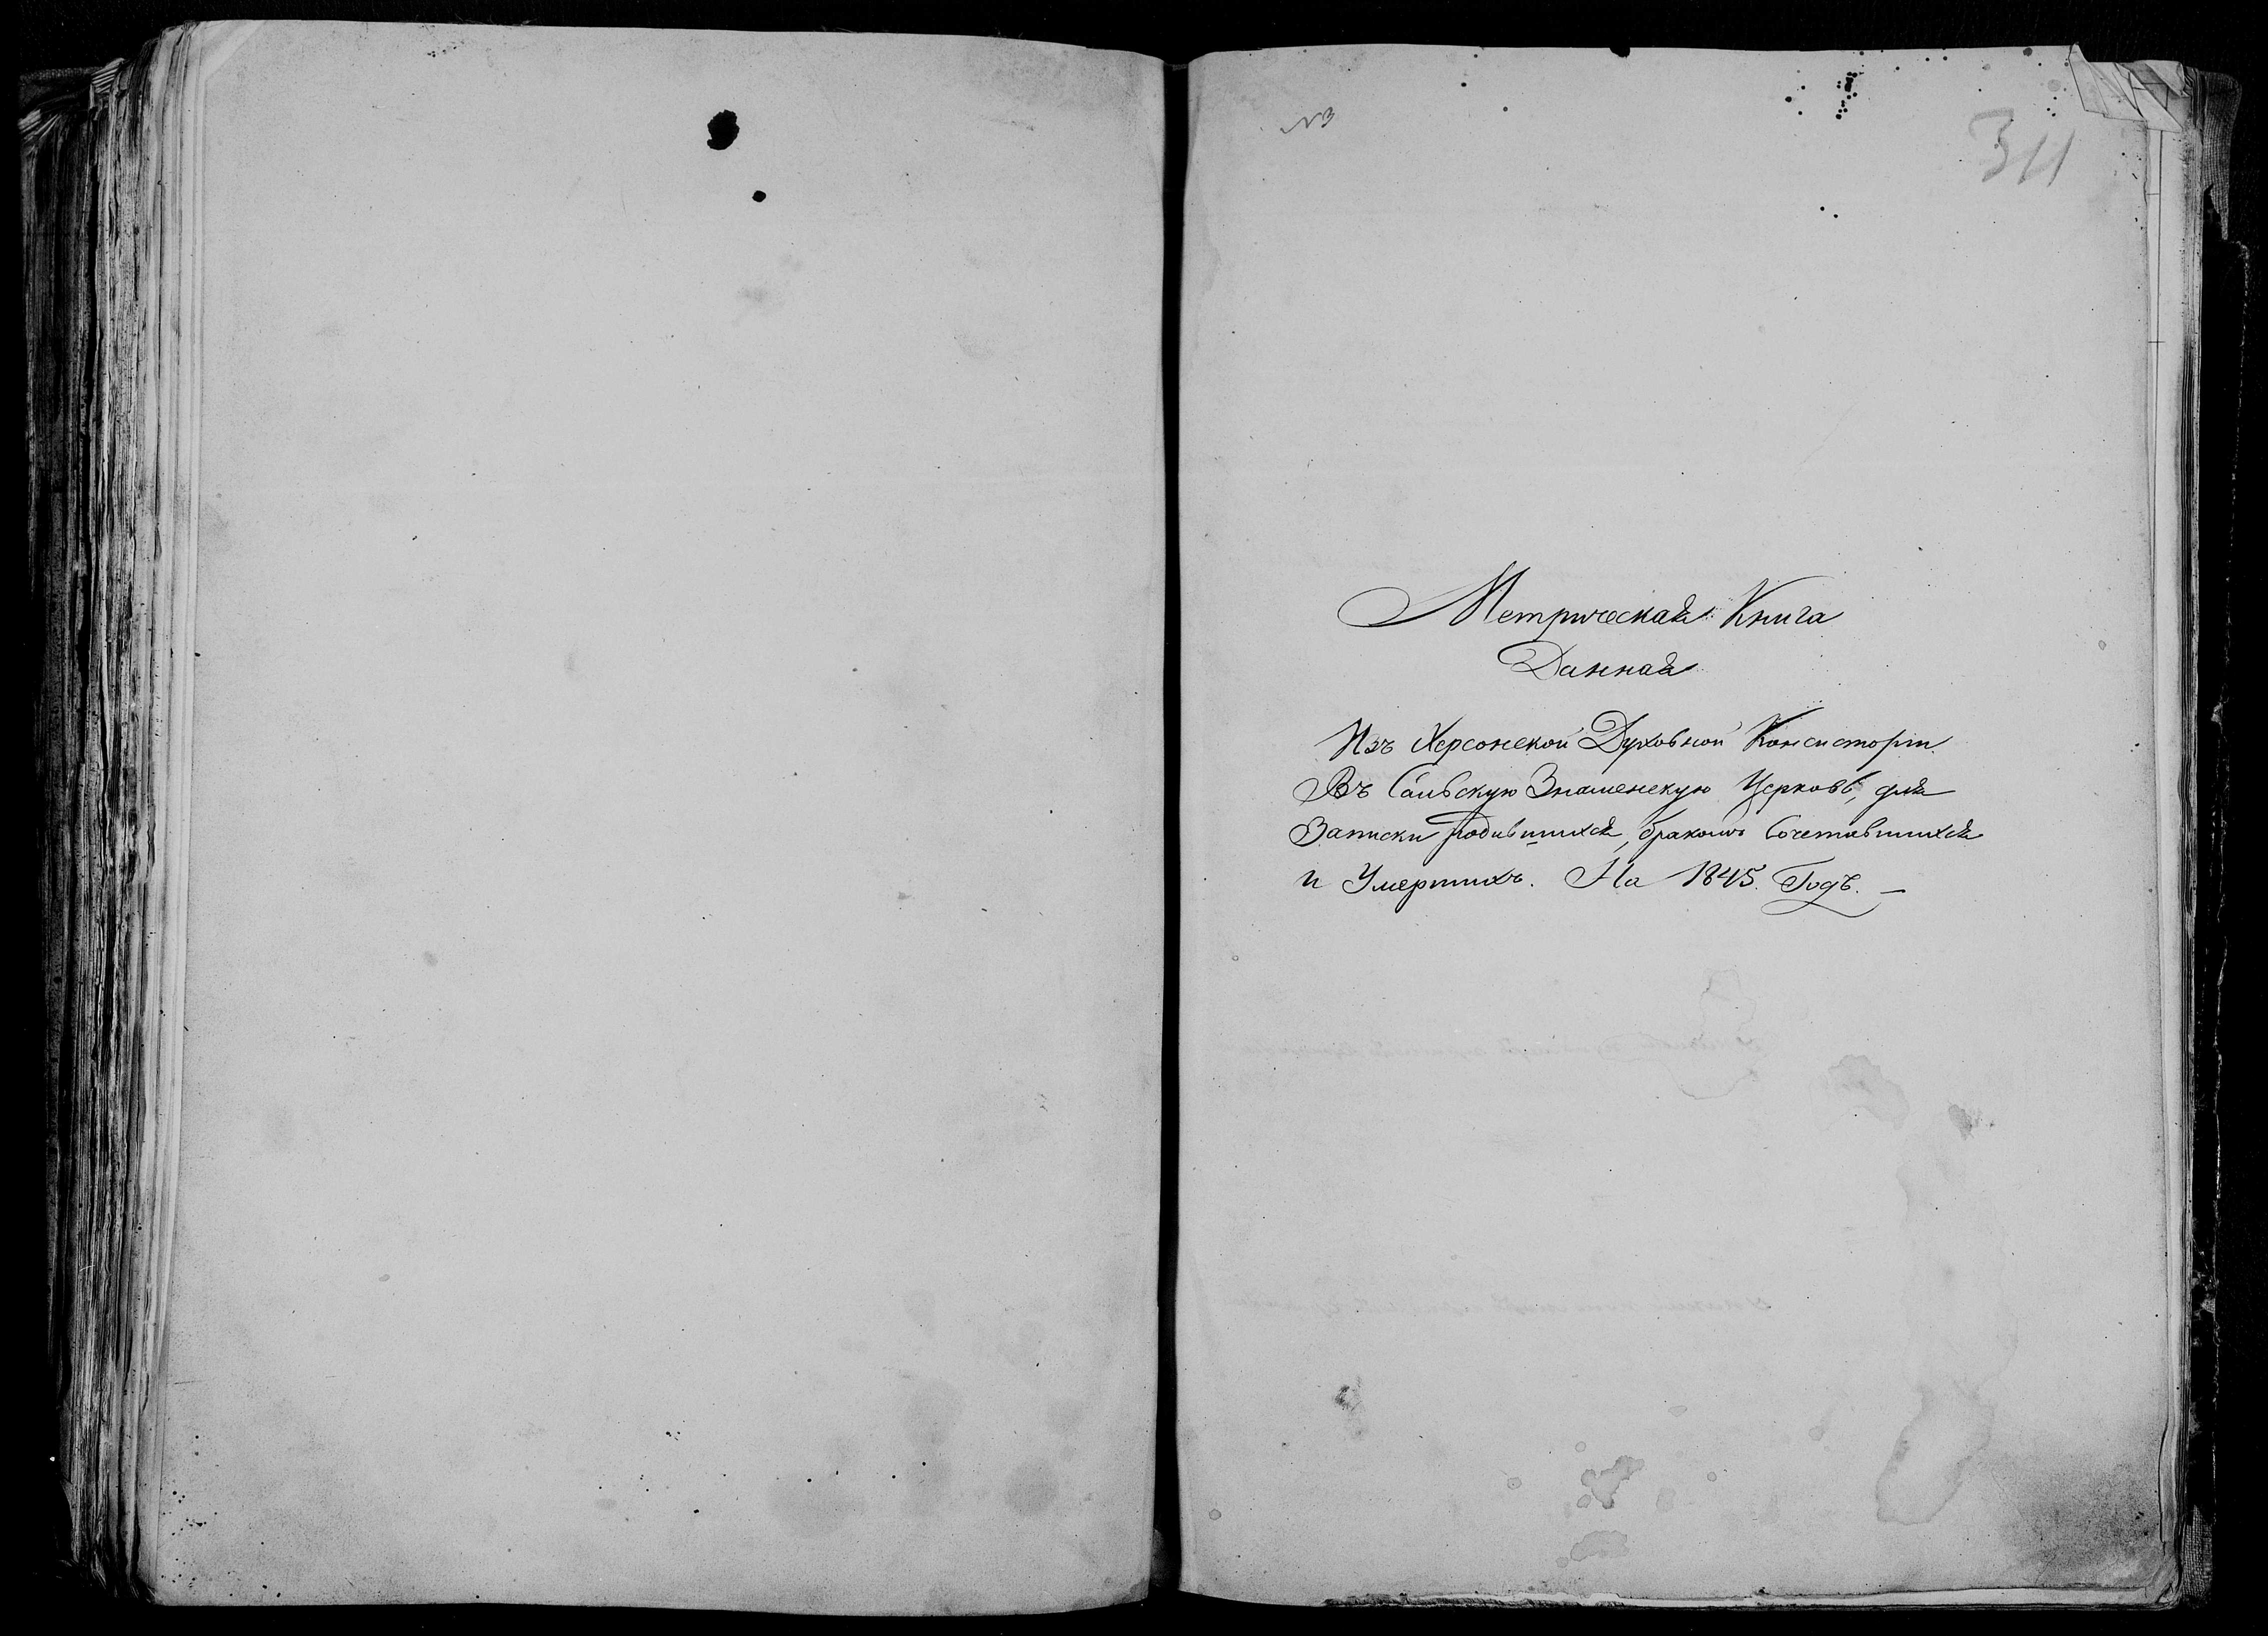 № 3
311
Метрическая Книга
Данная
Изъ Херсонской Духовной Консисторіи
Въ Знаменскую Церковь, для
Записки родившихся, бракомъ Сочетавшихся
и Умершихъ. На 1845. Годъ. —